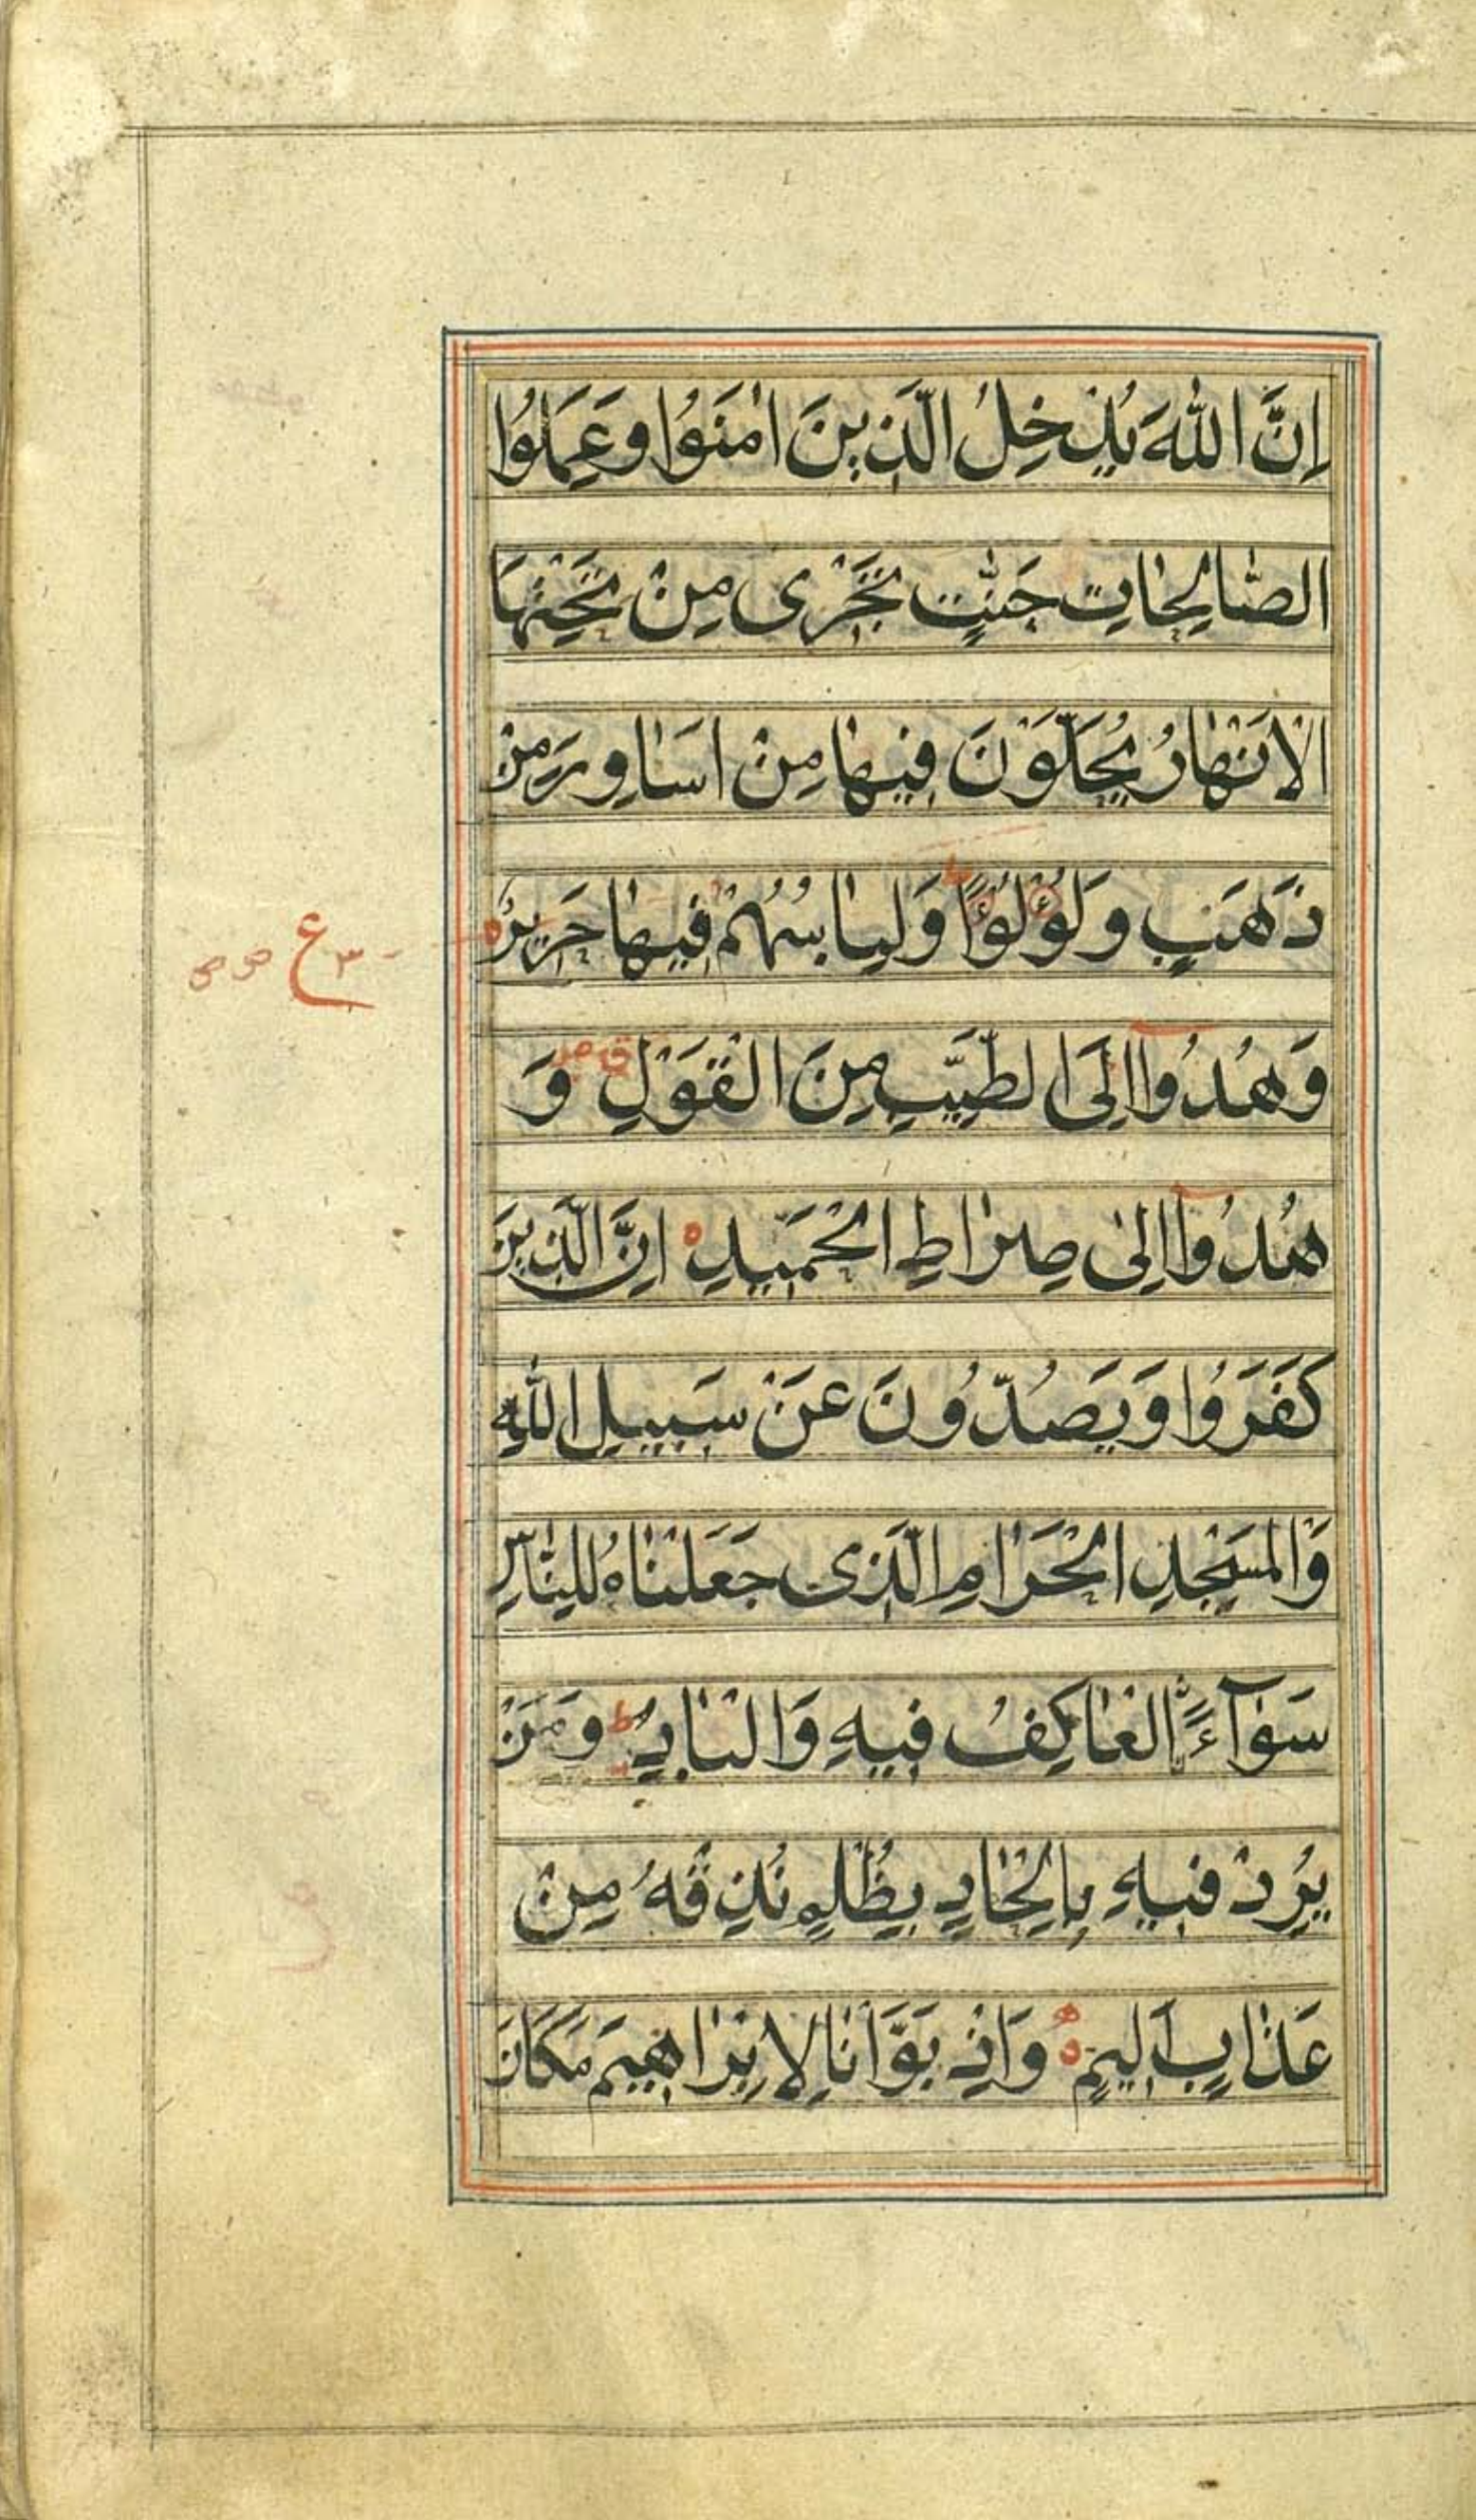 اِنَّ اللّٰهَ يُدْخِلُ الَّذِينَ اٰمَنُوْا وَعَمِلُوا
الصَّالِحَاتِ جَنّٰتٍ تَجْرٰى مِنْ تَحْتِهَا
الْاَنْهَارُ يُحَلَّوْنَ فِيهَا مِنْ اَسَاوِرَ مِنْ
ذَهَبٍ وَلُؤْلُؤًا وَلِبَاسُهُمْ فِيهَا حَرِيرٌ
وَهُدُوْآ اِلَى الطَّيِّبِ مِنَ الْقَوْلِ وَ
هُدُوْآ اِلٰى صِرَاطِ الْحَمِيدِ اِنَّ الَّذِينَ
كَفَرُوْا وَيَصُدُّوْنَ عَنْ سَبِيلِ اللّٰهِ
وَالْمَسْجِدِ الْحَرَامِ الَّذِى جَعَلْنَاهُ لِلنَّاسِ
سَوَآءً الْعَاكِفُ فِيهِ وَالْبَادِ ط وَمَنْ
يُرِدْ فِيهِ بِاِلْحَادٍ بِظُلْمٍ نُذِقْهُ مِنْ
عَذَابٍ اَلِيمٍ وَاِذْ بَوَّاْنَا لِاِبْرَاهِيمَ مَكَانَ
ع ٣